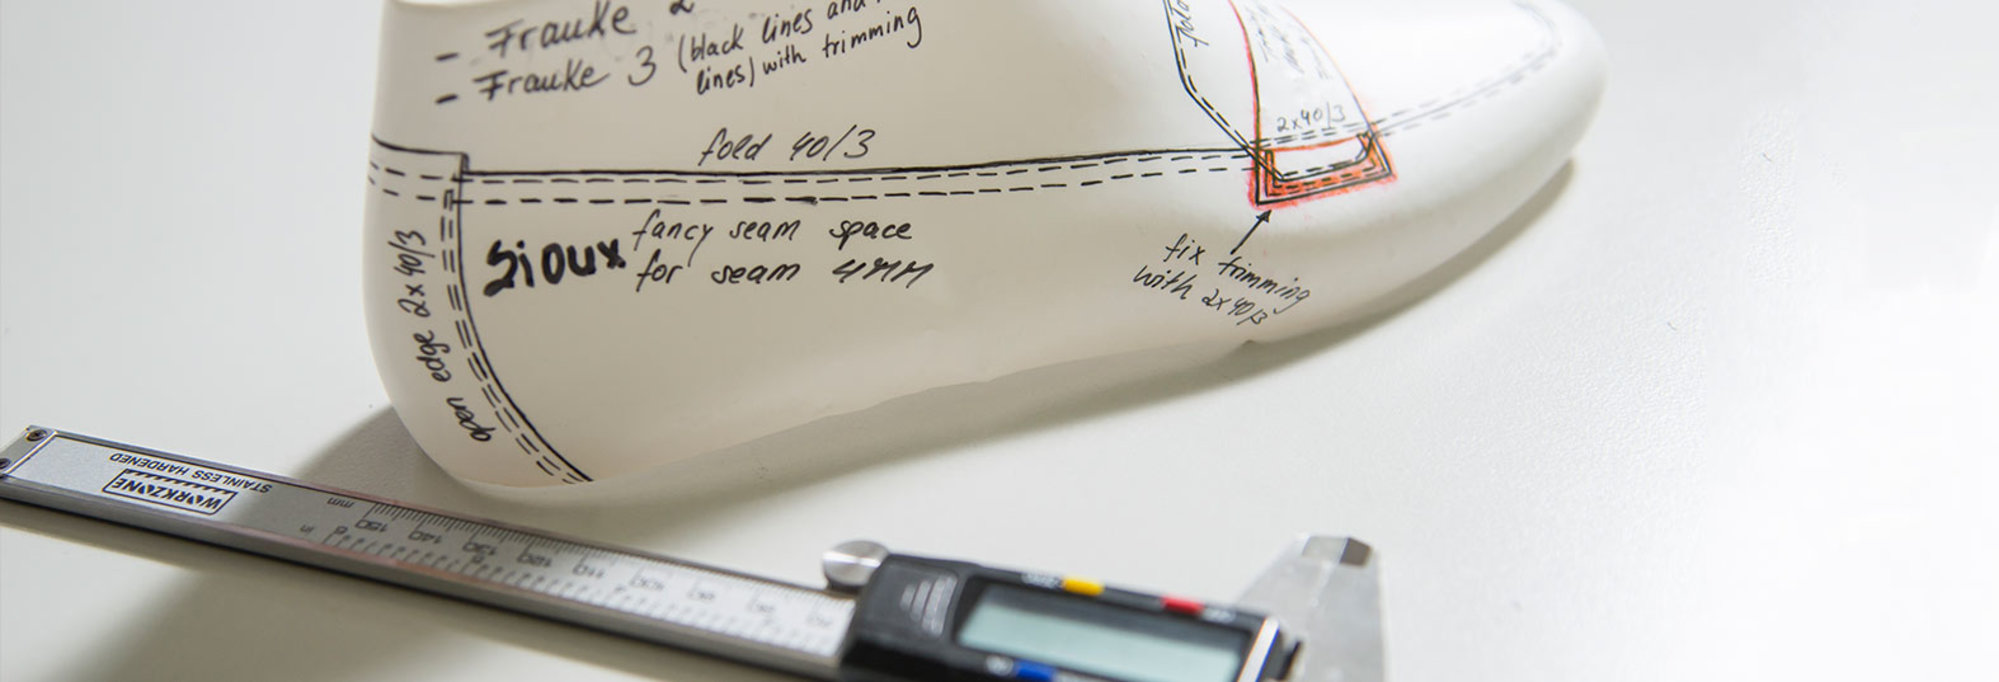 - Frauke 2
- Frauke 3 (black lines and
lines) with trimming
fold 40/3
2x40/3
Sioux
fancy seam space
for seam 4MM
open edge 2x40/3
fix trimming
with 2x40/3
STAINLESS HARDENED
WORKZONE
mm
in
150
140
130
120
110
100
90